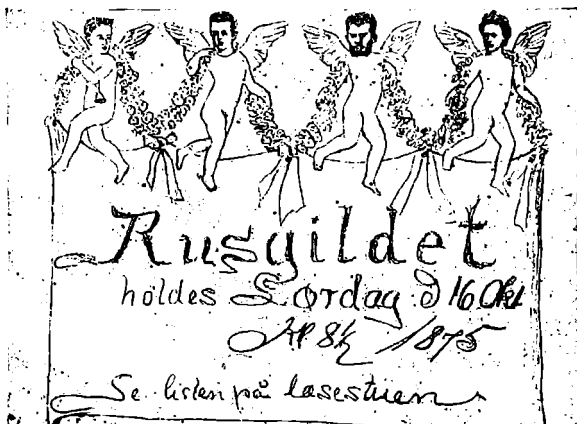 Rusgildet
holdes Lørdag d 16 Okt
Kl 8½ 1875
Se listen på læsestuen